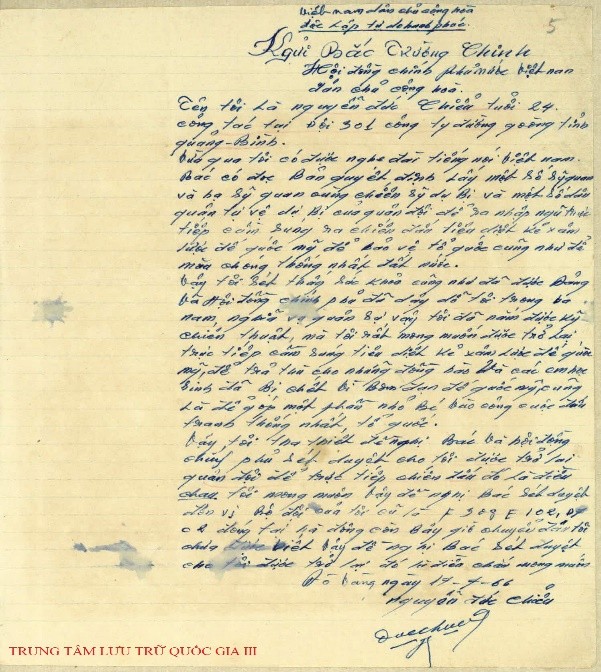 Việt-nam dân chủ cộng hoà
độc lập tự do hạnh phúc.
5
Kgửi Bác Trường Chinh
Hội đồng chính phủ nước Việt nam
dân chủ cộng hoà.
Tên tôi là nguyễn đức Chiểu tuổi 24.
công tác tại đội 301 công ty đường goòng tỉnh
quảng-Bình.
Vừa qua tôi có được nghe đài tiếng nói Việt nam.
Bác có đọc Bản quyết định lấy một số sỹ quan
và hạ sỹ quan cùng chiến sỹ dự Bị và một số dân
quân tự vệ dự Bị của quân đội để ra nhập ngũ trực
tiếp cầm súng ra chiến đấu tiêu diệt kẻ xâm
lược đế quốc mỹ để bảo vệ tổ quốc cũng như để
mau chóng thống nhất đất nước.
Vậy tôi sét thấy sức khoẻ cũng như đã được Đảng
và Hội đồng chính phủ đã dậy dỗ tôi trong ba
năm, nghĩa vụ quân sự vậy tôi đã nắm được kỹ
chiến thuật, mà tôi rất mong muốn được trở lại
trực tiếp cầm sung tiêu diệt kẻ xâm lược đế quốc
mỹ, để trả thù cho những đồng bào và các em học
sinh đã Bị chết vì Bom đạn đế quốc mỹ, cũng
là để góp một phần nhỏ Bé, vào công cuộc đấu
tranh thống nhất, tổ quốc.
Vậy tôi tha thiết đề nghị Bác và hội đồng
chính phủ sét duyệt cho tôi được trở lại
quân đội để trực tiếp chiến đấu đó là điều
tôi mong muốn vậy đề nghị Bác sét duyệt
đơn vị Bộ đội của tôi cũ là F 308
đóng tại hà đông còn Bây giờ chuyển đâu tôi
chưa được biết vậy đề nghị Bác sét duyệt
cho tôi được trở lại đó là điều mong muốn
ngày 17-7-66
nguyễn đức Chiểu
TRUNG TÂM LƯU TRỮ QUỐC GIA III